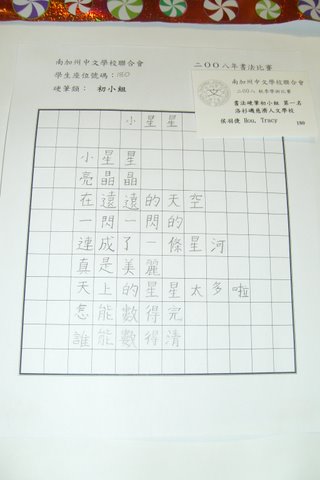 南加州中文學校聯合會
二〇〇八年書法比賽
學生座位號碼：180
硬筆類： 初小組
南加州中文學校聯合會
二〇〇八 秋季學術比賽
書法硬筆初小組 第一名
洛杉磯慈濟人文學校
侯羽倢 Hou, Tracy
180
小星星
小星星
亮晶晶
在遠遠的天空
一閃一閃的
連成了一條星河
真是美麗
天上的星星太多啦
怎能數得完
誰能數得清